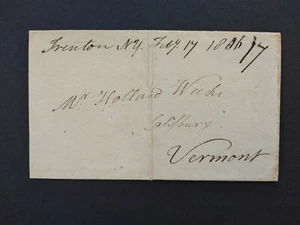 Trenton NY. Feby. 17 1836 17
Mr Holland Weeks
Salisbury
Vermont